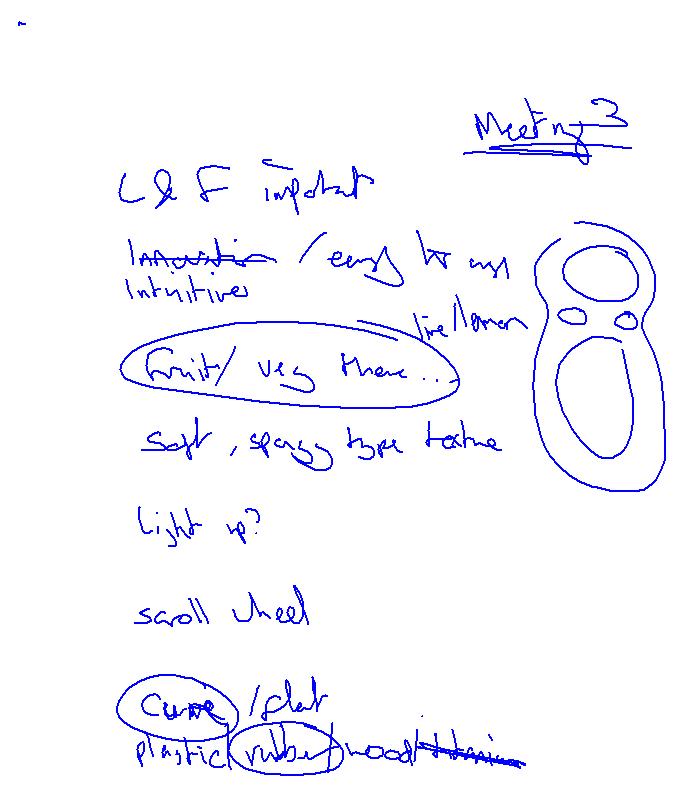 Meeting 3
L & F important
Innovation / easy to use
Intuitive
lime/lemon
fruit/ veg theme...
soft, spongy type texture
Light up?
scroll wheel
curve /flat
plastic/rubber/wood/titanium